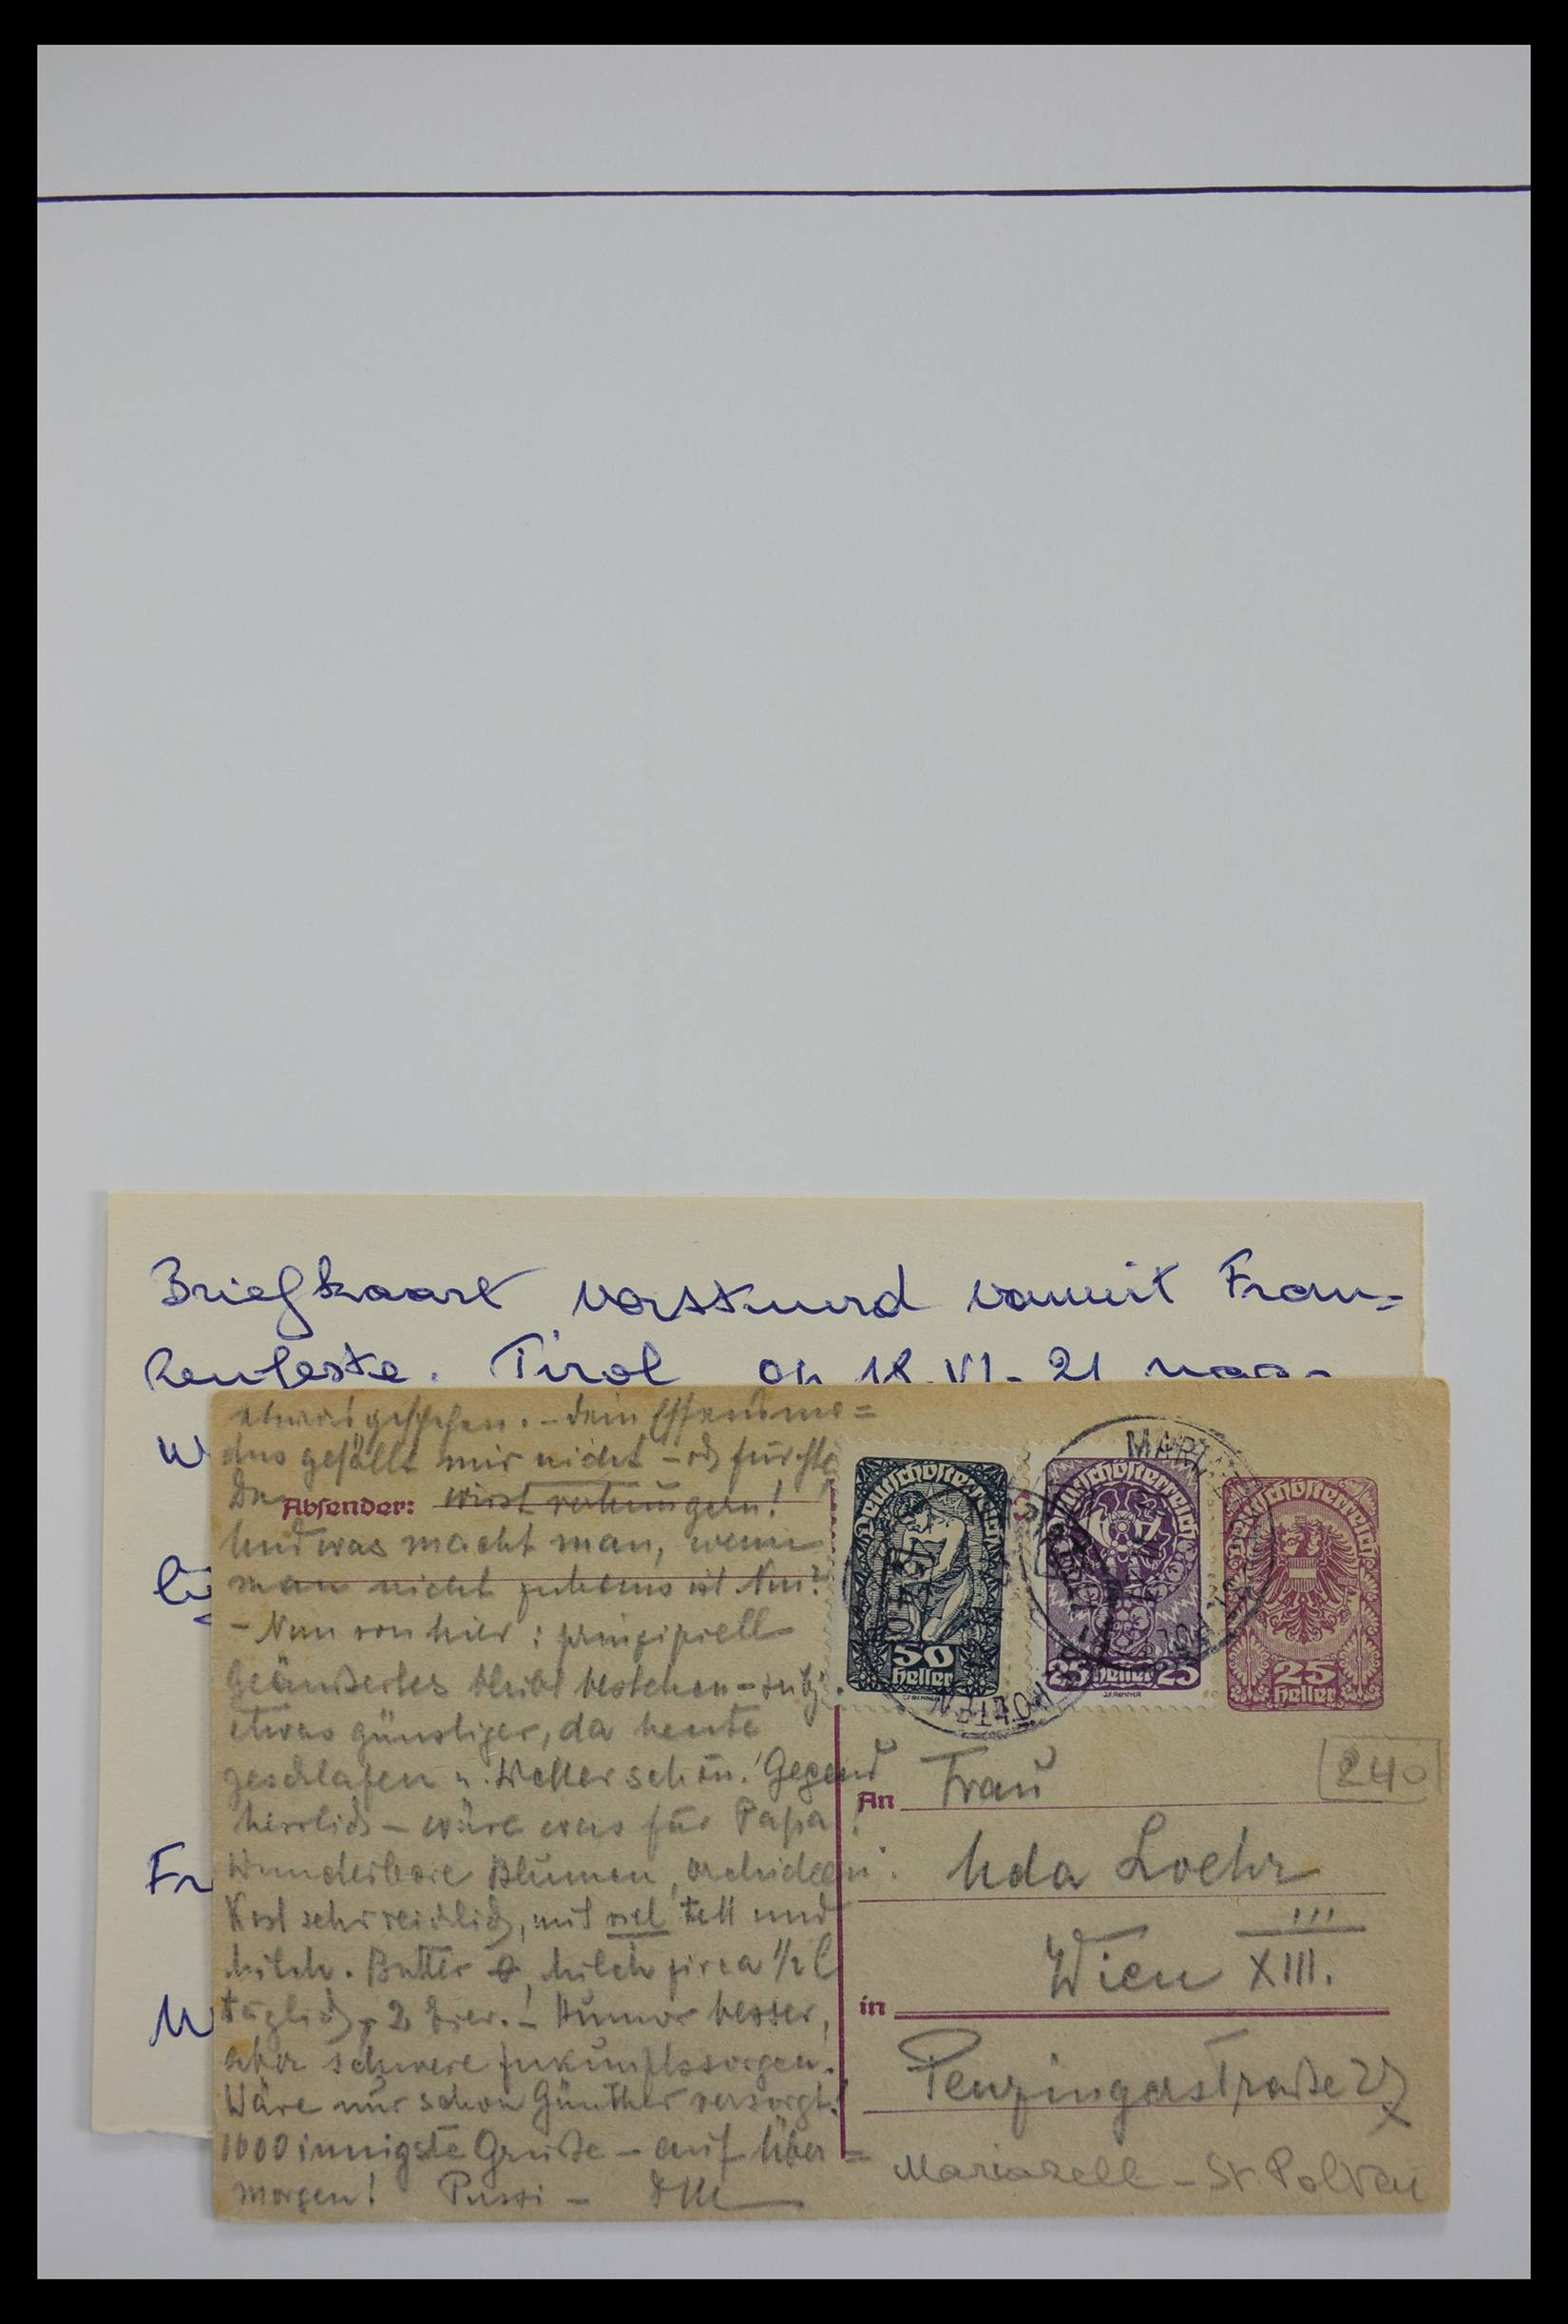 Briefkaart verstuurd vanuit Fran-
zenfeste. Tirol op 18.VI-21 naar
W
Fr
W
etwas geschehen. – dein
das gefällt mir nicht – ich fürchte
Du wirst verhungern!
Absender:
Und was macht man, wenn
man nicht zuhaus ist Nu?
– Nun von hier: prinzipiell
Geäußertes bleibt bestehen –
etwas günstiger, da heute
geschlafen u. Wetter schön. Gegend
herrlich – wäre was für Papa!
Wunderbare Blumen, Orchideen!
Kost sehr reichlich, mit viel Fett und
Milch. Butter Milch zirca 1/2 l
täglich, 2 Eier. – Humor besser,
aber schwere Zukunftssorgen.
Wäre nur schon Günther versorgt!
1000 innigste Grüße – auf über=
morgen! Pussi –
Deutschösterreich
50
Heller
Deutschösterreich
25 Heller 25
Deutschösterreich
25
Heller
240
An Frau
Loehr
in Wien XIII.
Penzingerstraße 27
Mariazell – St. Polten